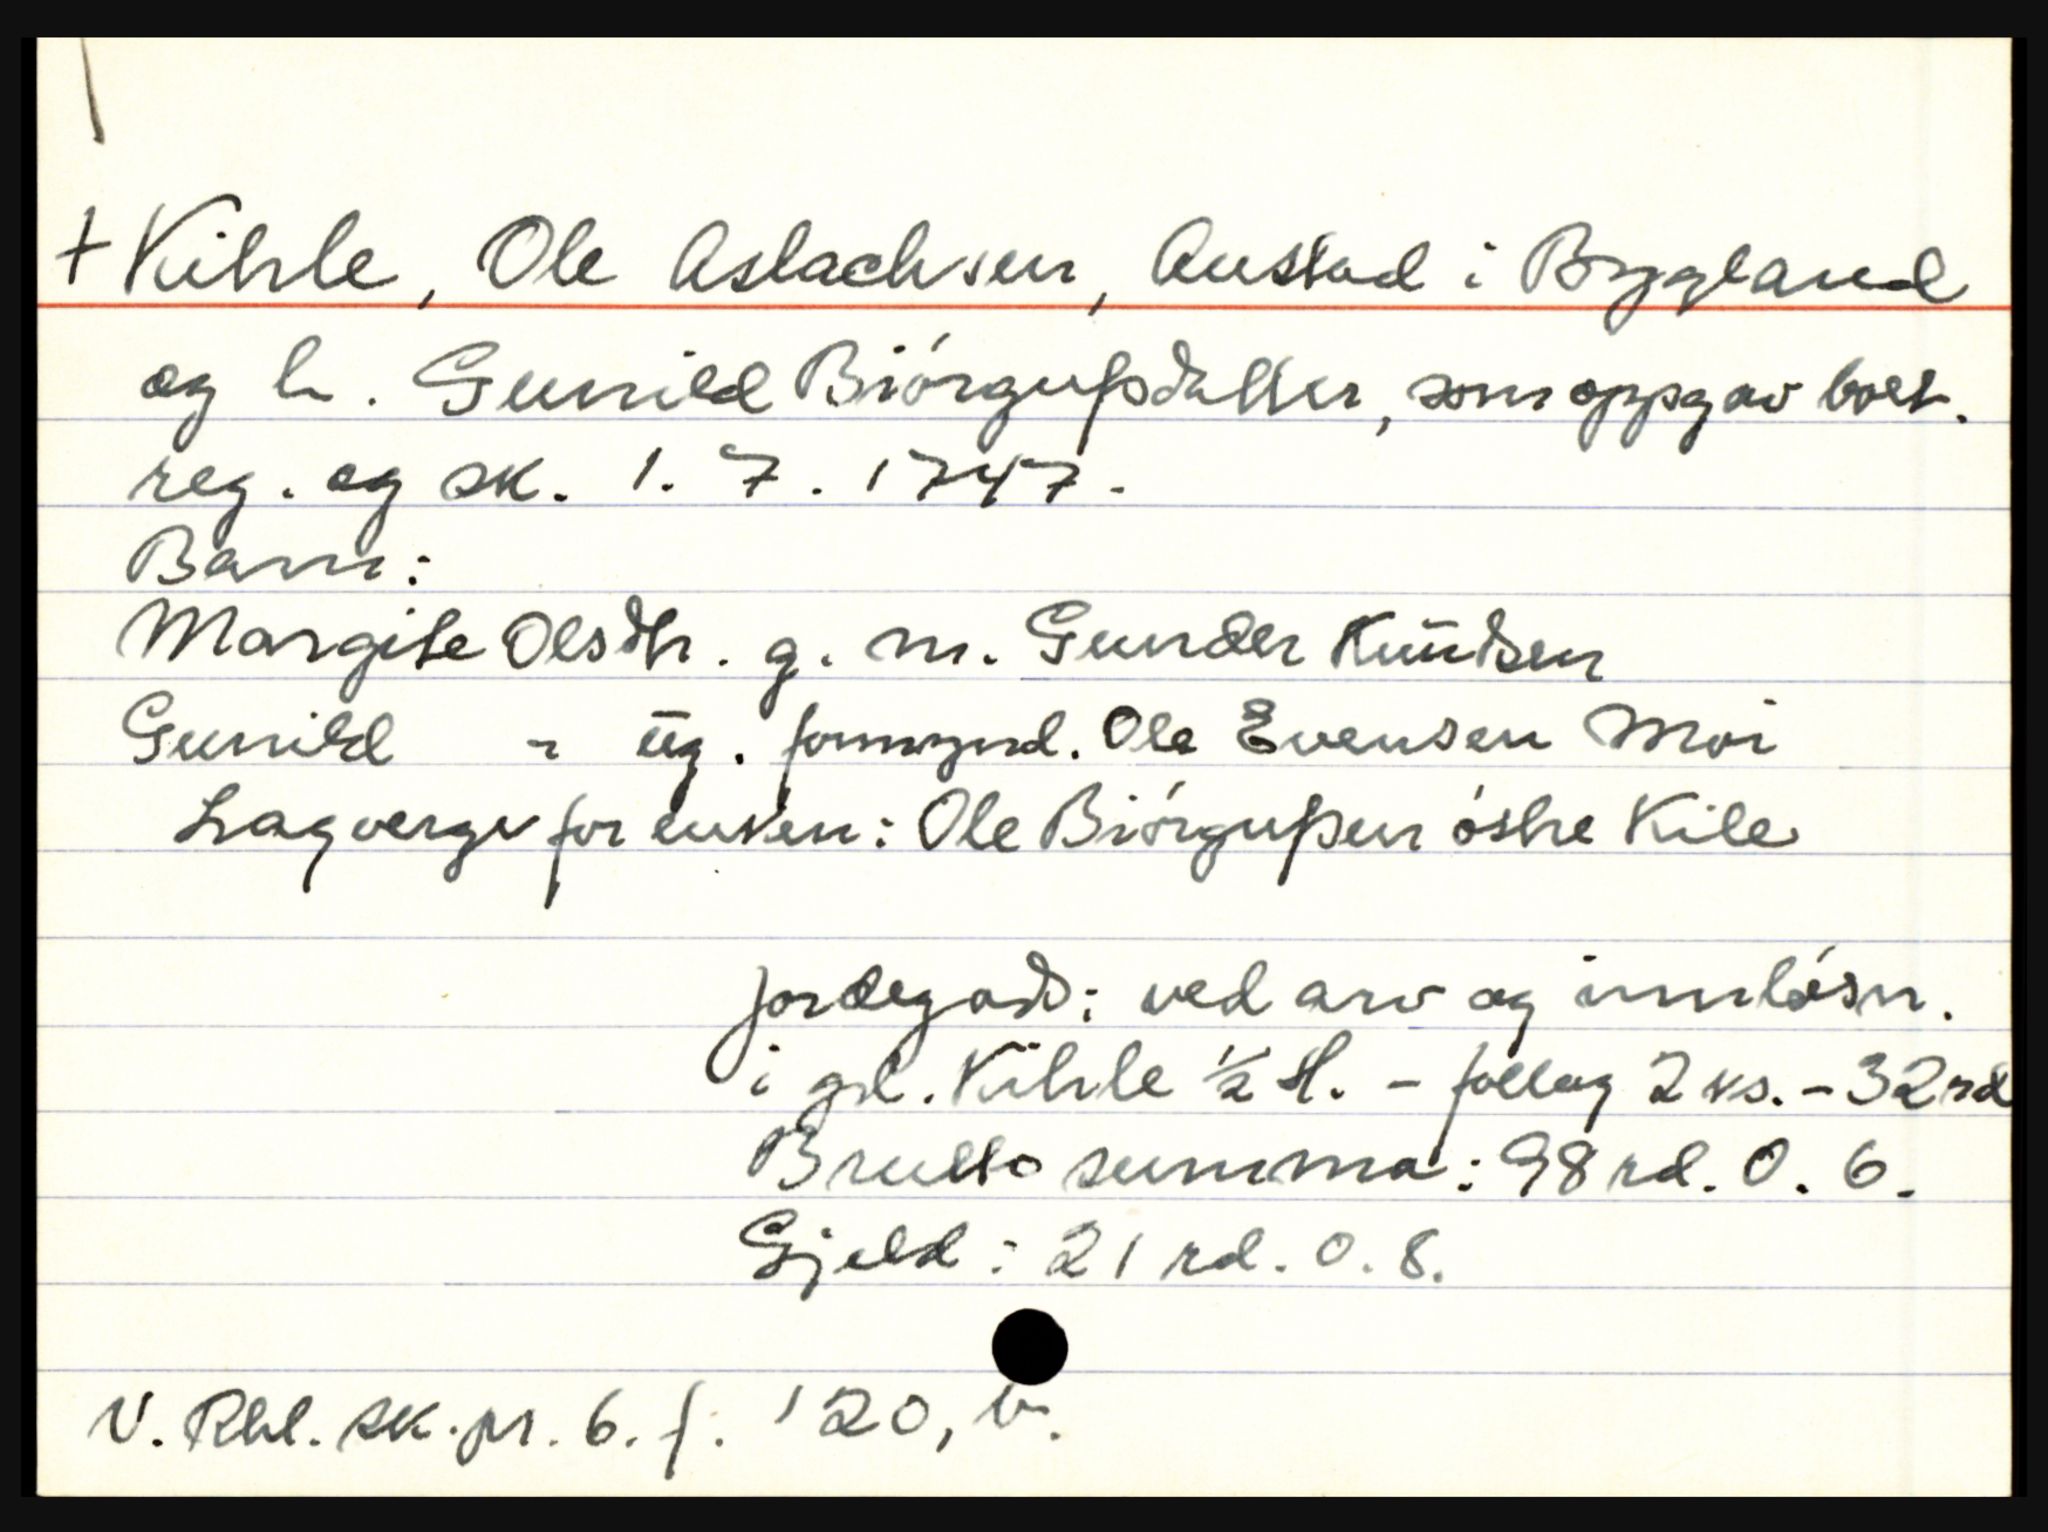 + Kihrle, Ole Aslachsen, Austad i Bygland
og h. Gunild Biórgufsdatter, som oppgav boet.
reg. og sk. 1. 7. 1747.
Barn:
Margite Olsdtr. g. m. Gunder Knudsen
Gunild - ug. formynd. Ole Evensen Moi
Lagverge for enken: Ole Biórgufsen óstre Kile
Jordegods: ved arv og innlósn.
i grd. Kihrle ½ H. - follug 2 ks. - 32 rd
Brutto summa: 98 rd. 0. 6.
Gjeld: 21 rd. 0. 8.
V. Rbl. sk. pr. 6. f. 120, b.